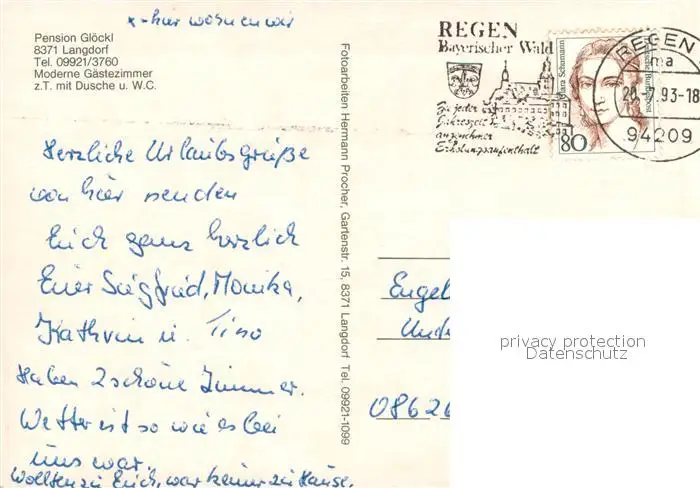 x-hier wohnen wir
Pension Glöckl
8371 Langdorf
Tel. 09921/3760
Moderne Gästezimmer
z.T. mit Dusche u. W.C.
Herzliche Urlaubsgrüße
von hier senden
Euch ganz herzlich
Euer Siegfried, Monika,
Kathrin u. Tino
Haben 2 schöne Zimmer.
Wetter ist so wie es bei
uns war.
Wollten zu Euch, war keiner zu Hause.
Fotoarbeiten Hermann Procher, Gartenstr. 15, 8371 Langdorf Tel. 09921-1099
REGEN
Bayerischer Wald
Zu jeder
Jahreszeit
angenehmer
Erholungsaufenthalt
Clara Schumann
Deutsche Bundespost
80
REGEN 1
ma
20.-7.93-18
94209
Engel
Unde
0862
privacy protection
Datenschutz